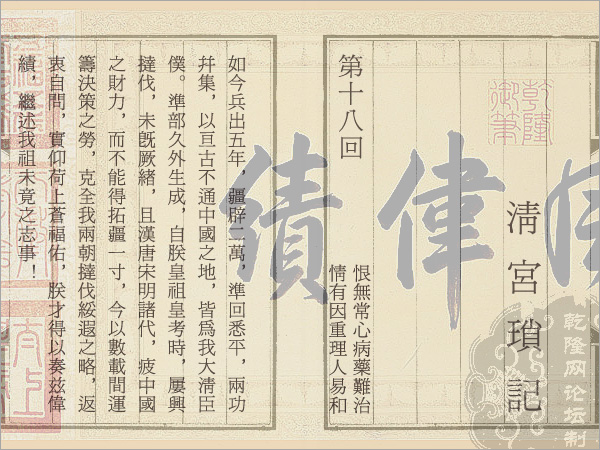 乾隆
御筆
清宮瑣記
乾隆网论坛制
偉績
第十八回
恨無常心病藥難治
情有因重理人易和
如今兵出五年，疆辟二萬，準回悉平，兩功
幷集，以亘古不通中國之地，皆爲我大清臣
僕。準部久外生成，自朕皇祖皇考時，屢興
撻伐，未旣厥緒，且漢唐宋明諸代，疲中國
之財力，而不能得拓疆一寸，今以數載間運
籌決策之勞，克全我兩朝撻伐綏遐之略，返
衷自問，實仰荷上蒼福佑，朕才得以奏茲偉
績，繼述我祖未竟之志事！